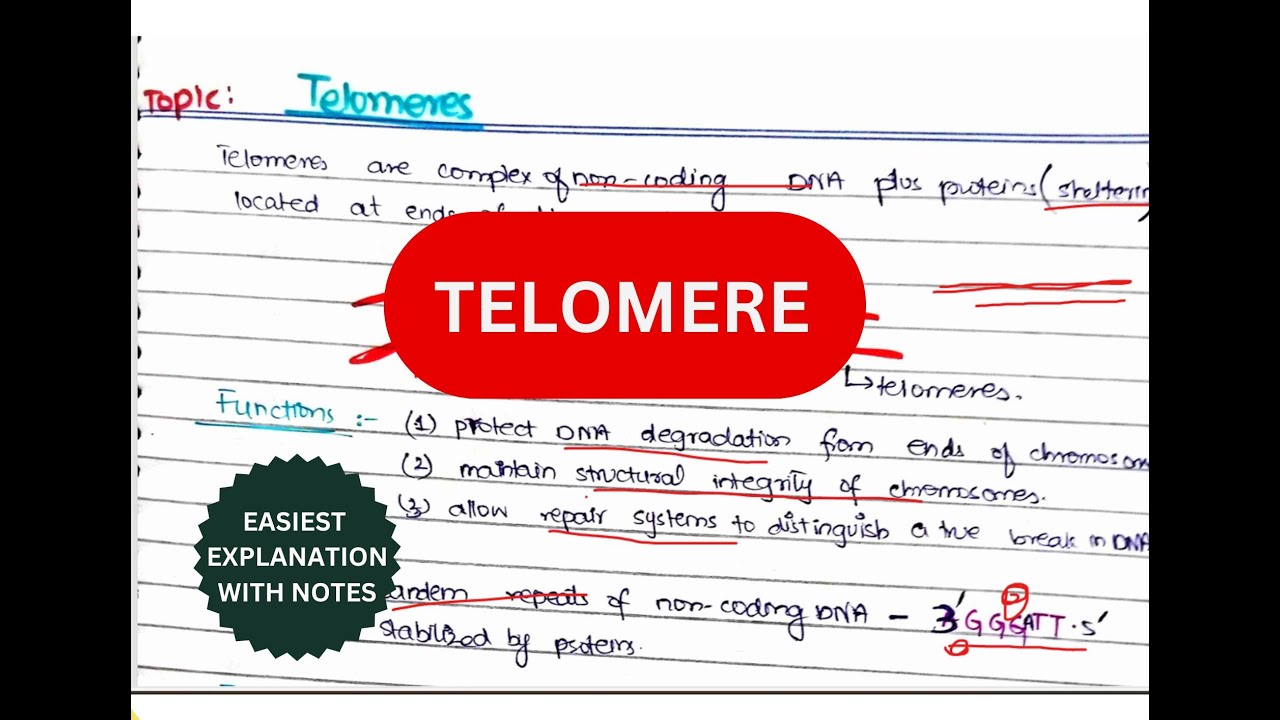 Topic: Telomeres
Telomeres are complex of non-coding DNA plus proteins (shelterin)
located at ends of
TELOMERE
↳telomeres.
Functions :- (1) protect DNA degradation from ends of chromosom
(2) maintain structural integrity of chromosomes.
(3) allow repair systems to distinguish a true break in DNA
EASIEST
EXPLANATION
WITH NOTES
andem repeats of non-coding DNA - 3' GGGATT.5'
stabilized by proteins.